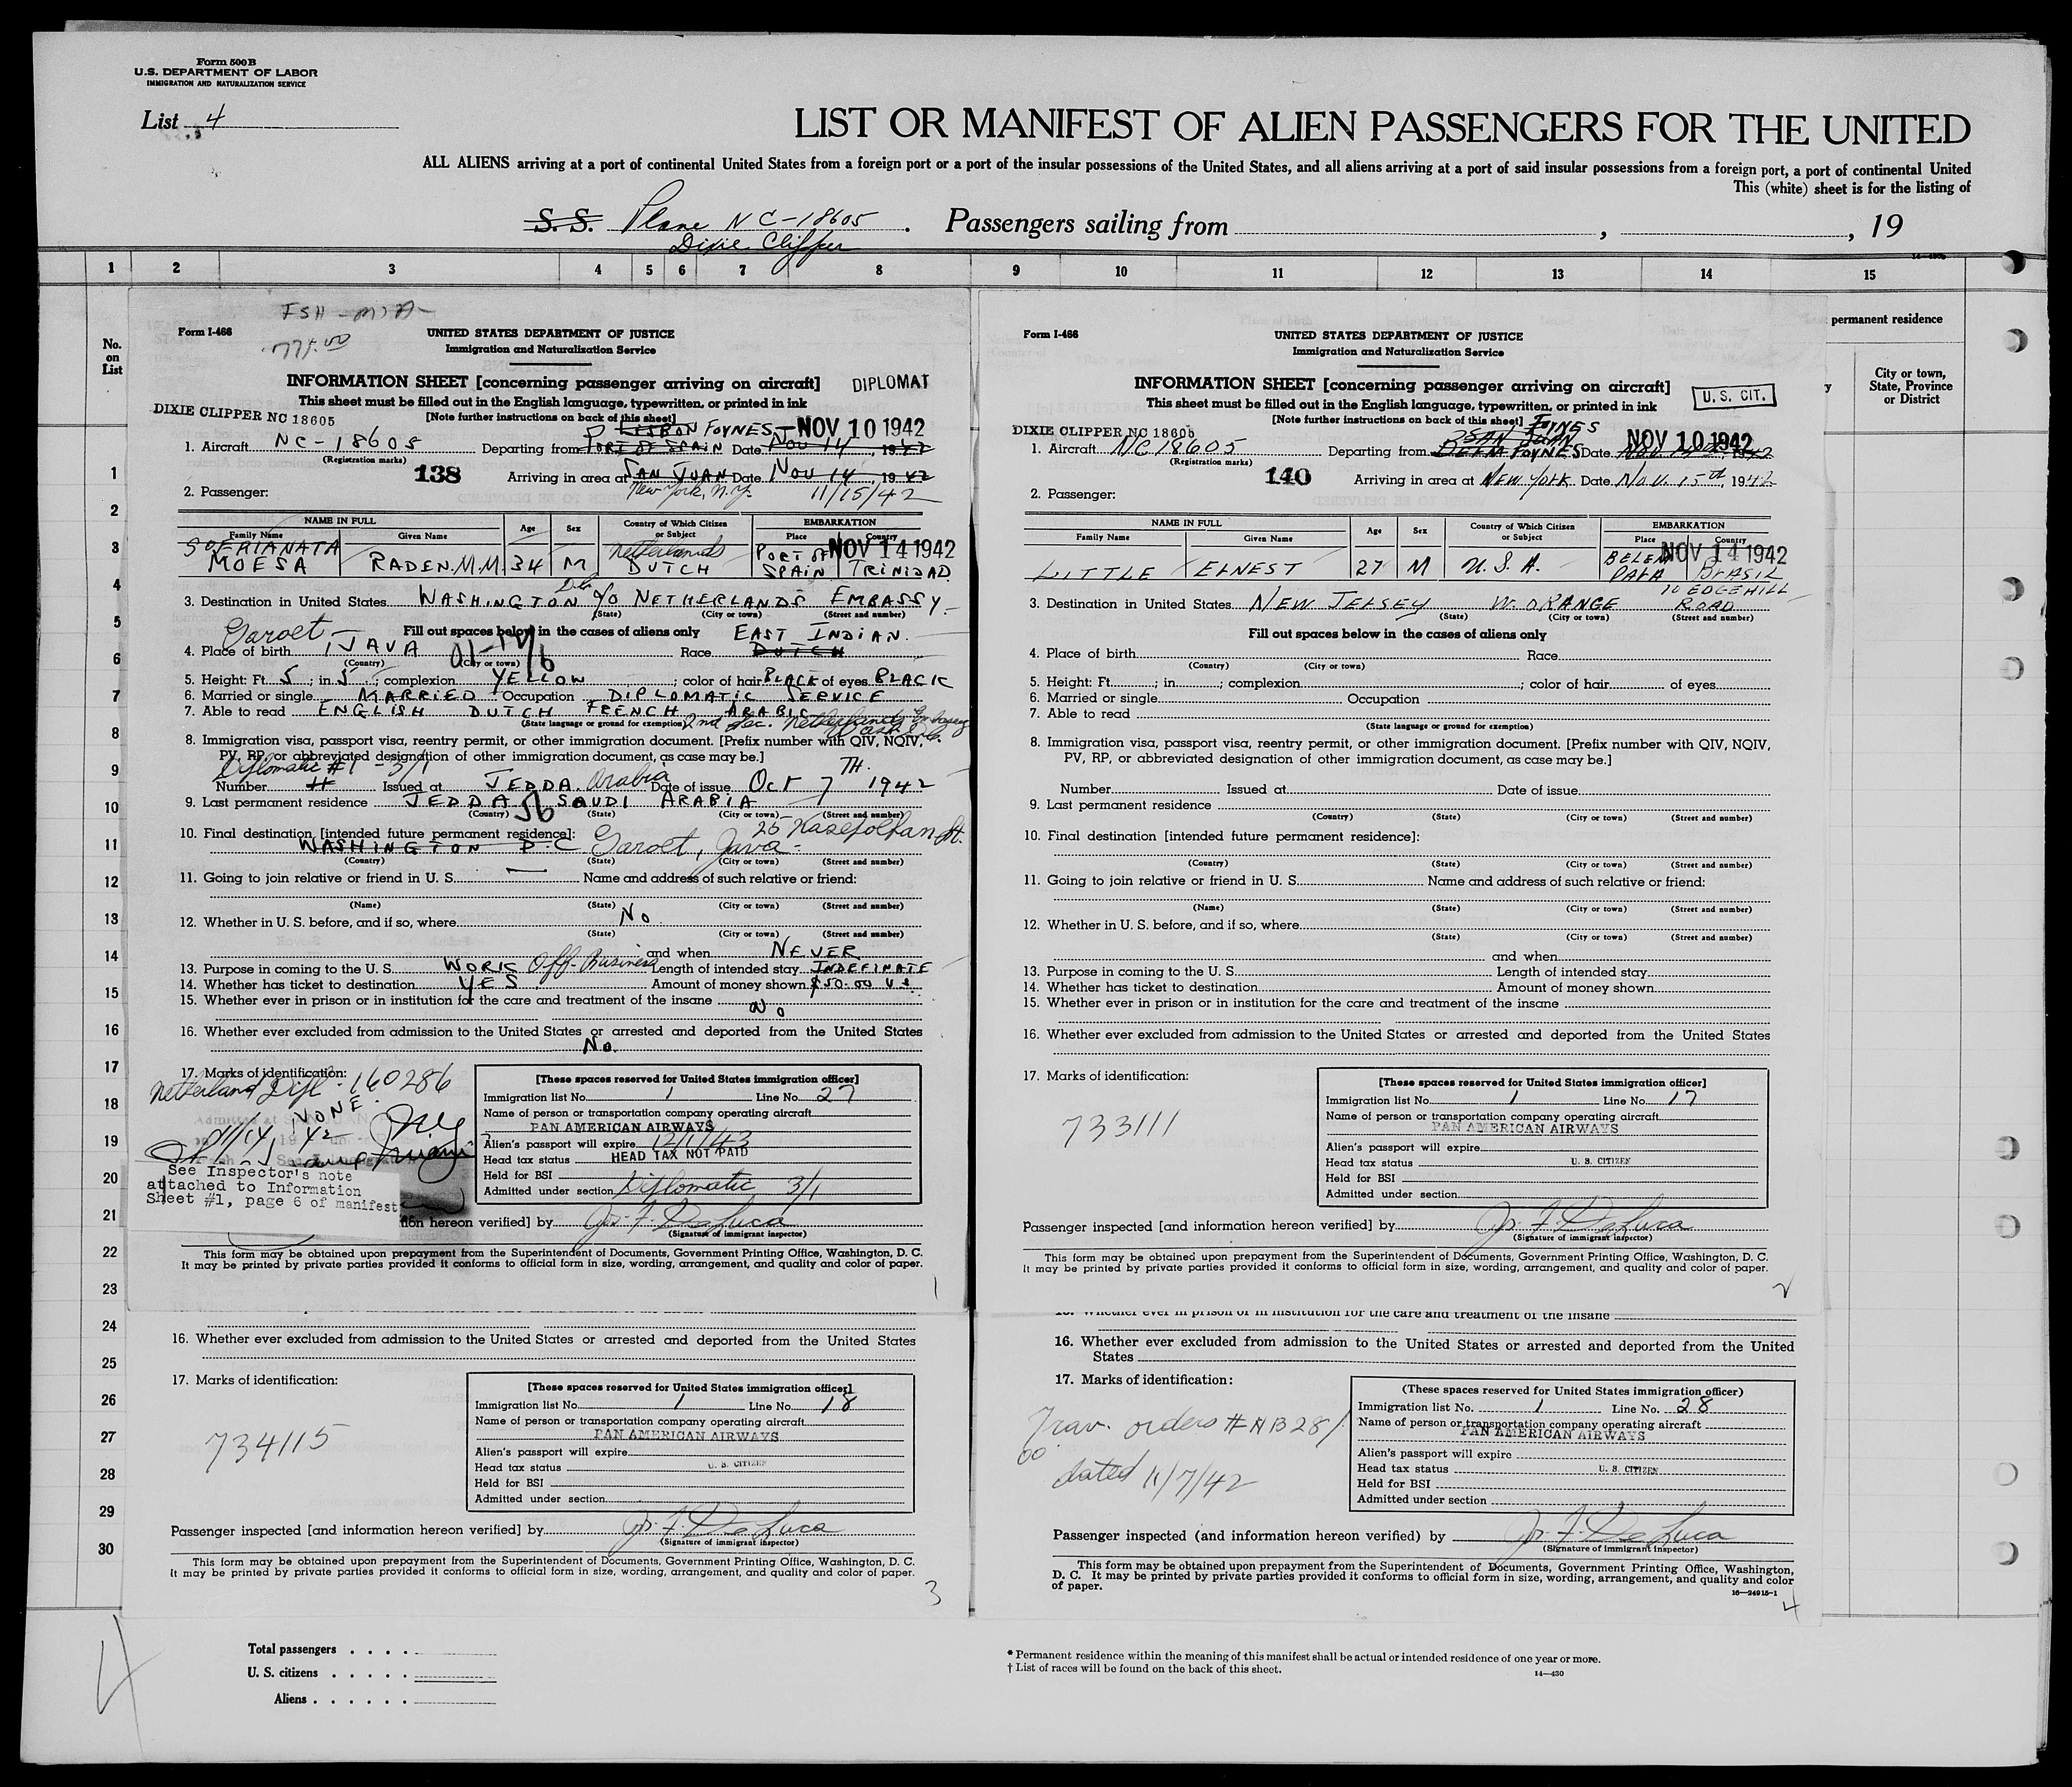 Form 500B
U.S. DEPARTMENT OF LABOR
IMMIGRATION AND NATURALIZATION SERVICE
List 4
LIST OR MANIFEST OF ALIEN PASSENGERS FOR THE UNITED
ALL ALIENS arriving at a port of continental United States from a foreign port or a port of the insular possessions of the United States, and all aliens arriving at a port of said insular possessions from a foreign port, a port of continental United
This (white) sheet is for the listing of
S.S. Plane NC-18605. Passengers sailing from , , 19
Dixie Clipper
1 2 3 4 5 6 7 8 9 10 11 12 13 14 15
No. on List
permanent residence
City or town, State, Province or District
1
2
3
4
5
6
7
8
9
10
11
12
13
14
15
16
17
18
19
20
21
22
23
24
25
26
27
28
29
30
Form I-466
UNITED STATES DEPARTMENT OF JUSTICE
Immigration and Naturalization Service
INFORMATION SHEET [concerning passenger arriving on aircraft]
DIPLOMAT
This sheet must be filled out in the English language, typewritten, or printed in ink
DIXIE CLIPPER NC 18605
[Note further instructions on back of this sheet]
LISBON FOYNES NOV 10 1942
1. Aircraft NC-18605 Departing from PORT OF SPAIN Date Nov 14, 1942
(Registration marks)
138 Arriving in area at SAN JUAN Date Nov 14 1942
New York, N.Y. 11/15/42
2. Passenger:
NAME IN FULL Age Sex Country of Which Citizen or Subject EMBARKATION
Family Name Given Name Place Country
SOERIANATA Netherlands PORT OF NOV 14 1942
MOESA RADEN.M.M 34 M DUTCH SPAIN TRINIDAD
3. Destination in United States WASHINGTON c/o NETHERLANDS EMBASSY
(State) (City or town) (Street and number)
Garoet Fill out spaces below in the cases of aliens only EAST INDIAN
4. Place of birth JAVA Race DUTCH
(Country) (City or town)
5. Height: Ft. 5; in 5; complexion YELLOW; color of hair BLACK of eyes BLACK
6. Married or single MARRIED Occupation DIPLOMATIC SERVICE
7. Able to read ENGLISH DUTCH FRENCH ARABIC
(State language or ground for exemption) 2nd Sec. Netherlands Embassy
8. Immigration visa, passport visa, reentry permit, or other immigration document. [Prefix number with QIV, NQIV,
PV, RP, or abbreviated designation of other immigration document, as case may be.]
Diplomatic #1 - 3/1
Number Issued at JEDDA Arabia Date of issue Oct 7 TH. 1942
9. Last permanent residence JEDDA SAUDI ARABIA
(Country) (State) (City or town) (Street and number)
10. Final destination [intended future permanent residence]:
WASHINGTON D.C Garoet, Java
(Country) (State) (City or town) (Street and number)
11. Going to join relative or friend in U. S. Name and address of such relative or friend:
(Name) (State) (City or town) (Street and number)
12. Whether in U. S. before, and if so, where No
(State) (City or town) (Street and number)
and when NEVER
13. Purpose in coming to the U. S. WORK Off. Business Length of intended stay INDEFINATE
14. Whether has ticket to destination YES Amount of money shown $50.00 U.S.
15. Whether ever in prison or in institution for the care and treatment of the insane
No
16. Whether ever excluded from admission to the United States or arrested and deported from the United States
No.
17. Marks of identification:
Netherland Dipl. 160286
NONE
11/14/42
See Inspector's note
attached to Information
Sheet #1, page 6 of manifest
[These spaces reserved for United States immigration officer]
Immigration list No. 1 Line No. 27
Name of person or transportation company operating aircraft
PAN AMERICAN AIRWAYS
Alien's passport will expire 12/1/43
Head tax status HEAD TAX NOT PAID
Held for BSI
Admitted under section Diplomatic 3/1
tion hereon verified] by Jos. F. De Luca
(Signature of immigrant inspector)
This form may be obtained upon prepayment from the Superintendent of Documents, Government Printing Office, Washington, D. C.
It may be printed by private parties provided it conforms to official form in size, wording, arrangement, and quality and color of paper.
1
Form I-466
UNITED STATES DEPARTMENT OF JUSTICE
Immigration and Naturalization Service
INFORMATION SHEET [concerning passenger arriving on aircraft]
U. S. CIT.
This sheet must be filled out in the English language, typewritten, or printed in ink
[Note further instructions on back of this sheet] FOYNES
DIXIE CLIPPER NC 18605
SAN JUAN NOV 10 1942
1. Aircraft NC18605 Departing from BELEM FOYNES Date 1942
(Registration marks)
140 Arriving in area at NEW YORK Date NOV. 15th, 1942
2. Passenger:
NAME IN FULL Age Sex Country of Which Citizen or Subject EMBARKATION
Family Name Given Name Place Country
NOV 14 1942
LITTLE ERNEST 27 M U.S.A. BELEM PARA BRASIL
10 EDGEHILL
3. Destination in United States NEW JERSEY W. ORANGE ROAD
(State) (City or town) (Street and number)
Fill out spaces below in the cases of aliens only
4. Place of birth Race
(Country) (City or town)
5. Height: Ft. ; in ; complexion ; color of hair of eyes
6. Married or single Occupation
7. Able to read
(State language or ground for exemption)
8. Immigration visa, passport visa, reentry permit, or other immigration document. [Prefix number with QIV, NQIV,
PV, RP, or abbreviated designation of other immigration document, as case may be.]
Number Issued at Date of issue
9. Last permanent residence
(Country) (State) (City or town) (Street and number)
10. Final destination [intended future permanent residence]:
(Country) (State) (City or town) (Street and number)
11. Going to join relative or friend in U. S. Name and address of such relative or friend:
(Name) (State) (City or town) (Street and number)
12. Whether in U. S. before, and if so, where
(State) (City or town) (Street and number)
and when
13. Purpose in coming to the U. S. Length of intended stay
14. Whether has ticket to destination Amount of money shown
15. Whether ever in prison or in institution for the care and treatment of the insane
16. Whether ever excluded from admission to the United States or arrested and deported from the United States
17. Marks of identification:
733111
[These spaces reserved for United States immigration officer]
Immigration list No. 1 Line No. 17
Name of person or transportation company operating aircraft
PAN AMERICAN AIRWAYS
Alien's passport will expire
Head tax status U. S. CITIZEN
Held for BSI
Admitted under section
Passenger inspected [and information hereon verified] by Jos. F. De Luca
(Signature of immigrant inspector)
This form may be obtained upon prepayment from the Superintendent of Documents, Government Printing Office, Washington, D. C.
It may be printed by private parties provided it conforms to official form in size, wording, arrangement, and quality and color of paper.
2
16. Whether ever excluded from admission to the United States or arrested and deported from the United States
17. Marks of identification:
734115
[These spaces reserved for United States immigration officer]
Immigration list No. 1 Line No. 18
Name of person or transportation company operating aircraft
PAN AMERICAN AIRWAYS
Alien's passport will expire
Head tax status U. S. CITIZEN
Held for BSI
Admitted under section
Passenger inspected [and information hereon verified] by Jos. F. De Luca
(Signature of immigrant inspector)
This form may be obtained upon prepayment from the Superintendent of Documents, Government Printing Office, Washington, D. C.
It may be printed by private parties provided it conforms to official form in size, wording, arrangement, and quality and color of paper.
3
15. Whether ever in prison or in institution for the care and treatment of the insane
16. Whether ever excluded from admission to the United States or arrested and deported from the United
States
17. Marks of identification:
Trav. orders
dated 11/7/42
(These spaces reserved for United States immigration officer)
Immigration list No. 1 Line No. 28
Name of person or transportation company operating aircraft
PAN AMERICAN AIRWAYS
Alien's passport will expire
Head tax status U. S. CITIZEN
Held for BSI
Admitted under section
Passenger inspected (and information hereon verified) by Jos. F. De Luca
(Signature of immigrant inspector)
This form may be obtained upon prepayment from the Superintendent of Documents, Government Printing Office, Washington,
D. C. It may be printed by private parties provided it conforms to official form in size, wording, arrangement, and quality and color
of paper.
16—24915-1
4
4
Total passengers
U. S. citizens
Aliens
* Permanent residence within the meaning of this manifest shall be actual or intended residence of one year or more.
† List of races will be found on the back of this sheet.
14—430